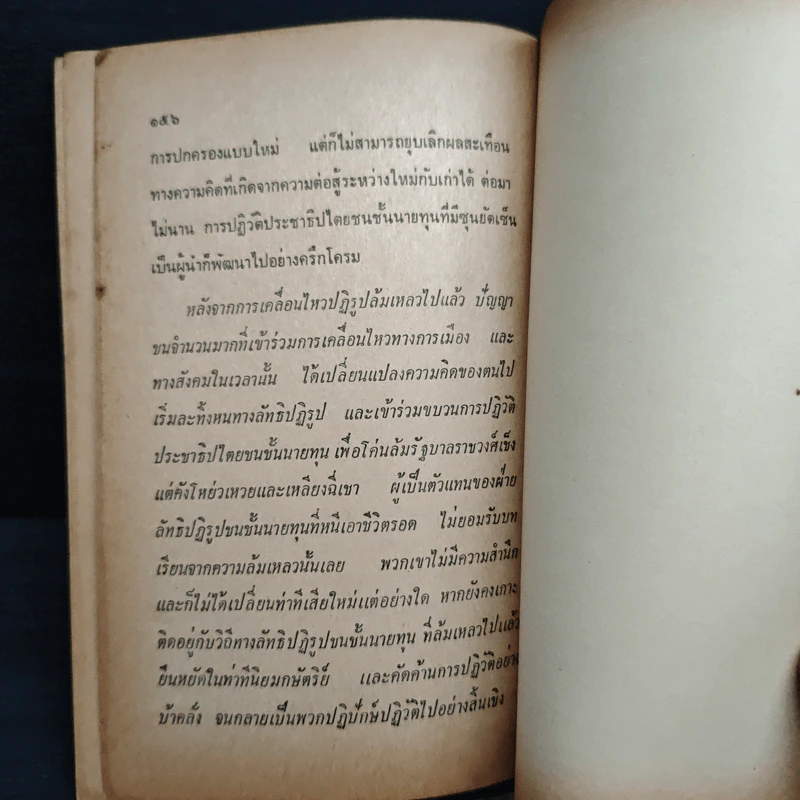 ๑๕๖
การปกครองแบบใหม่ แต่ก็ไม่สามารถยุบเลิกผลสะเทือน
ทางความคิดที่เกิดจากความต่อสู้ระหว่างใหม่กับเก่าได้ ต่อมา
ไม่นาน การปฏิวัติประชาธิปไตยชนชั้นนายทุนที่มีซุนยัดเซ็น
เป็นผู้นำก็พัฒนาไปอย่างครึกโครม
หลังจากการเคลื่อนไหวปฏิรูปล้มเหลวไปแล้ว ปัญญา
ชนจำนวนมากที่เข้าร่วมการเคลื่อนไหวทางการเมือง และ
ทางสังคมในเวลานั้น ได้เปลี่ยนแปลงความคิดของตนไป
เริ่มละทิ้งหนทางลัทธิปฏิรูป และเข้าร่วมขบวนการปฏิวัติ
ประชาธิปไตยชนชั้นนายทุน เพื่อโค่นล้มรัฐบาลราชวงศ์เช็ง
แต่คังโหย่วเหวยและเหลียงฉี่เขา ผู้เป็นตัวแทนของฝ่าย
ลัทธิปฏิรูปชนชั้นนายทุนที่หนีเอาชีวิตรอด ไม่ยอมรับบท
เรียนจากความล้มเหลวนั้นเลย พวกเขาไม่มีความสำนึก
และก็ไม่ได้เปลี่ยนท่าทีเสียใหม่แต่อย่างใด หากยังคงเกาะ
ติดอยู่กับวิถีทางลัทธิปฏิรูปชนชั้นนายทุน ที่ล้มเหลวไปแล้ว
ยืนหยัดในท่าทีนิยมกษัตริย์ และคัดค้านการปฏิวัติอย่าง
บ้าคลั่ง จนกลายเป็นพวกปฏิปักษ์ปฏิวัติไปอย่างสิ้นเชิง